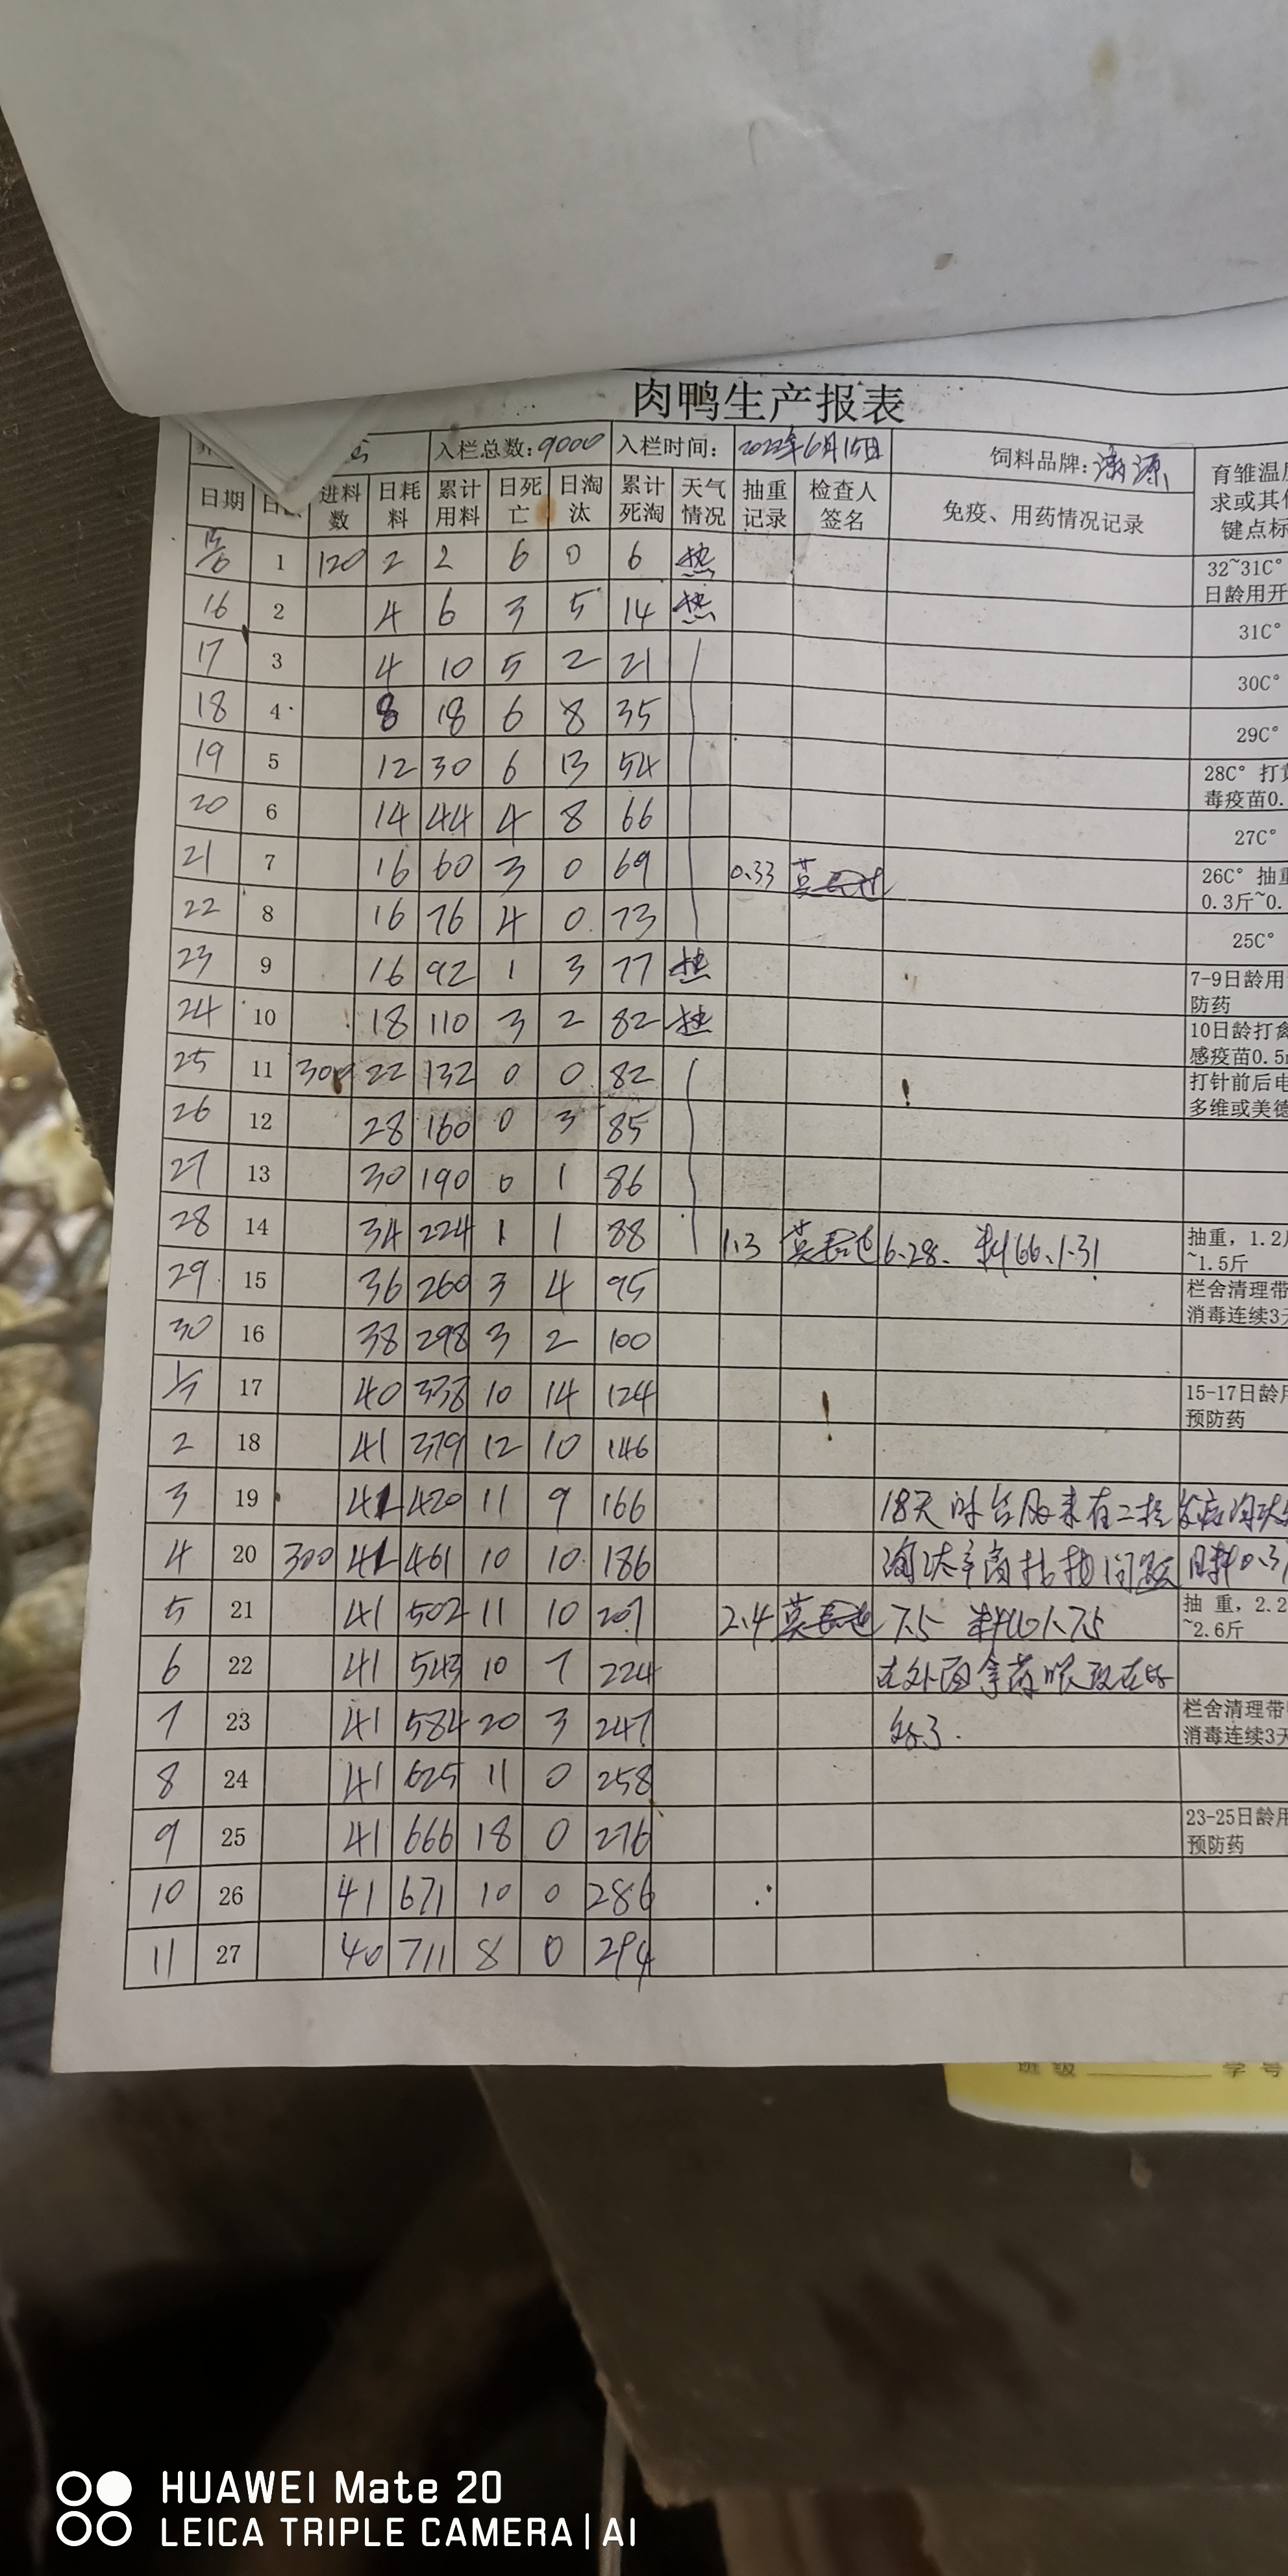 肉鸭生产报表
入栏总数: 9000 入栏时间: 2022年6月15日 饲料品牌: 源
日期 进料数 日耗料 累计用料 日死亡 日淘汰 累计死淘 天气情况 抽重记录 检查人签名 免疫、用药情况记录 育雏温 求或其 键点标
15/6 1 120 2 2 6 0 6 热 32~31C° 日龄用开
16 2 4 6 3 5 14 热 31C°
17 3 4 10 5 2 21 30C°
18 4 8 18 6 8 35 29C°
19 5 12 30 6 13 54 28C° 打 毒疫苗0.
20 6 14 44 4 8 66 27C°
21 7 16 60 3 0 69 0.33 莫 26C° 抽重 0.3斤~0.
22 8 16 76 4 0 73 25C°
23 9 16 92 1 3 77 热 7-9日龄用 防药
24 10 18 110 3 2 82 热 10日龄打禽 感疫苗0.5
25 11 300 22 132 0 0 82 打针前后电 多维或美德
26 12 28 160 0 3 85
27 13 30 190 0 1 86
28 14 34 224 1 1 88 1.3 莫 6.28. 料66、1.31 抽重, 1.2 ~1.5斤
29 15 36 260 3 4 95 栏舍清理带 消毒连续3天
30 16 38 298 3 2 100
1/7 17 40 338 10 14 124 15-17日龄用 预防药
2 18 41 379 12 10 146
3 19 41 420 11 9 166 18天时台风来有二栏发病淘汰
4 20 300 41 461 10 10 186 淘汰率高 问题 日料0.3
5 21 41 502 11 10 207 2.4 莫 7.5 料 1.75 抽 重, 2.2 ~2.6斤
6 22 41 543 10 7 224 在外面拿药 现在好
7 23 41 584 20 3 247 了. 栏舍清理带 消毒连续3天
8 24 41 625 11 0 258
9 25 41 666 18 0 276 23-25日龄用 预防药
10 26 41 671 10 0 286
11 27 40 711 8 0 294
班级 学号
HUAWEI Mate 20
LEICA TRIPLE CAMERA | AI